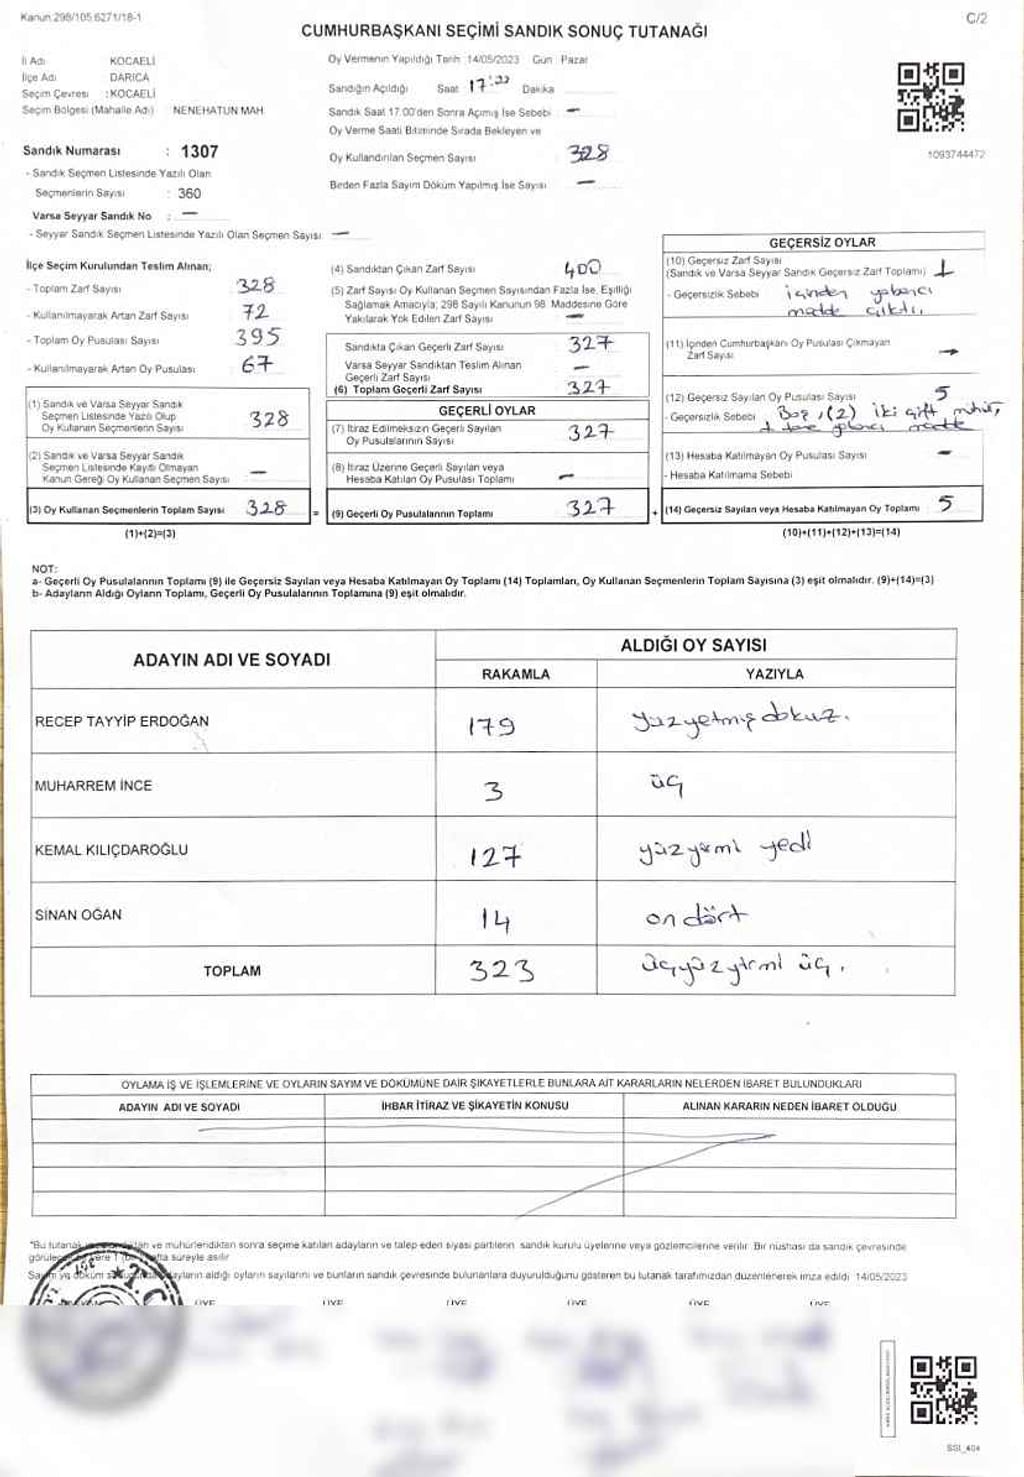 Kanun 298/105 6271/18-1
C/2
CUMHURBAŞKANI SEÇİMİ SANDIK SONUÇ TUTANAĞI
İl Adı KOCAELİ
İlçe Adı DARICA
Seçim Çevresi : KOCAELİ
Seçim Bölgesi (Mahalle Adı) NENEHATUN MAH
Sandık Numarası : 1307
- Sandık Seçmen Listesinde Yazılı Olan
Seçmenlerin Sayısı : 360
Varsa Seyyar Sandık No : —
- Seyyar Sandık Seçmen Listesinde Yazılı Olan Seçmen Sayısı: —
Oy Vermenin Yapıldığı Tarih :14/05/2023 Gün : Pazar
Sandığın Açıldığı Saat 17:00 Dakika
Sandık Saat 17.00'den Sonra Açımış İse Sebebi : —
Oy Verme Saati Bitiminde Sırada Bekleyen ve
Oy Kullandırılan Seçmen Sayısı 328
Birden Fazla Sayım Döküm Yapılmış İse Sayısı —
1093744472
İlçe Seçim Kurulundan Teslim Alınan;
- Toplam Zarf Sayısı 328
- Kullanılmayarak Artan Zarf Sayısı 72
- Toplam Oy Pusulası Sayısı 395
- Kullanılmayarak Artan Oy Pusulası 67
(1) Sandık ve Varsa Seyyar Sandık
Seçmen Listesinde Yazılı Olup
Oy Kullanan Seçmenlerin Sayısı 328
(2) Sandık ve Varsa Seyyar Sandık
Seçmen Listesinde Kayıtlı Olmayan
Kanun Gereği Oy Kullanan Seçmen Sayısı —
(3) Oy Kullanan Seçmenlerin Toplam Sayısı 328 =
(1)+(2)=(3)
(4) Sandıktan Çıkan Zarf Sayısı 400
(5) Zarf Sayısı Oy Kullanan Seçmen Sayısından Fazla İse, Eşitliği
Sağlamak Amacıyla; 298 Sayılı Kanunun 98. Maddesine Göre
Yakılarak Yok Edilen Zarf Sayısı —
Sandıkta Çıkan Geçerli Zarf Sayısı 327
Varsa Seyyar Sandıktan Teslim Alınan
Geçerli Zarf Sayısı —
(6) Toplam Geçerli Zarf Sayısı 327
GEÇERLİ OYLAR
(7) İtiraz Edilmeksizin Geçerli Sayılan
Oy Pusulalarının Sayısı 327
(8) İtiraz Üzerine Geçerli Sayılan veya
Hesaba Katılan Oy Pusulası Toplamı —
(9) Geçerli Oy Pusulalarının Toplamı 327 +
GEÇERSİZ OYLAR
(10) Geçersiz Zarf Sayısı
(Sandık ve Varsa Seyyar Sandık Geçersiz Zarf Toplamı) 1
- Geçersizlik Sebebi içinden yabancı
madde çıktı.
(11) İçinden Cumhurbaşkanı Oy Pusulası Çıkmayan
Zarf Sayısı —
(12) Geçersiz Sayılan Oy Pusulası Sayısı 5
- Geçersizlik Sebebi Boş, (2) iki çift mühür,
1 tane yabancı madde
(13) Hesaba Katılmayan Oy Pusulası Sayısı —
- Hesaba Katılmama Sebebi
(14) Geçersiz Sayılan veya Hesaba Katılmayan Oy Toplamı 5
(10)+(11)+(12)+(13)=(14)
NOT:
a- Geçerli Oy Pusulalarının Toplamı (9) ile Geçersiz Sayılan veya Hesaba Katılmayan Oy Toplamı (14) Toplamları, Oy Kullanan Seçmenlerin Toplam Sayısına (3) eşit olmalıdır. (9)+(14)=(3)
b- Adayların Aldığı Oyların Toplamı, Geçerli Oy Pusulalarının Toplamına (9) eşit olmalıdır.
ADAYIN ADI VE SOYADI
ALDIĞI OY SAYISI
RAKAMLA YAZIYLA
RECEP TAYYİP ERDOĞAN 179 yüzyetmiş dokuz.
MUHARREM İNCE 3 üç
KEMAL KILIÇDAROĞLU 127 yüzyirmi yedi
SİNAN OĞAN 14 on dört
TOPLAM 323 üçyüzyirmi üç.
OYLAMA İŞ VE İŞLEMLERİNE VE OYLARIN SAYIM VE DÖKÜMÜNE DAİR ŞİKAYETLERLE BUNLARA AİT KARARLARIN NELERDEN İBARET BULUNDUKLARI
ADAYIN ADI VE SOYADI İHBAR İTİRAZ VE ŞİKAYETİN KONUSU ALINAN KARARIN NEDEN İBARET OLDUĞU
"Bu tutanak ve mühürlendikten sonra seçime katılan adayların ve talep eden siyasi partilerin sandık kurulu üyelerine veya gözlemcilerine verilir. Bir nüshası da sandık çevresinde
süreyle asılır
Sayım ve döküm adayların aldığı oyların sayılarını ve bunların sandık çevresinde bulunanlara duyurulduğunu gösteren bu tutanak tarafımızdan düzenlenerek imza edildi 14/05/2023
ÜYE ÜYE ÜYE ÜYE ÜYE ÜYE
SSI_404